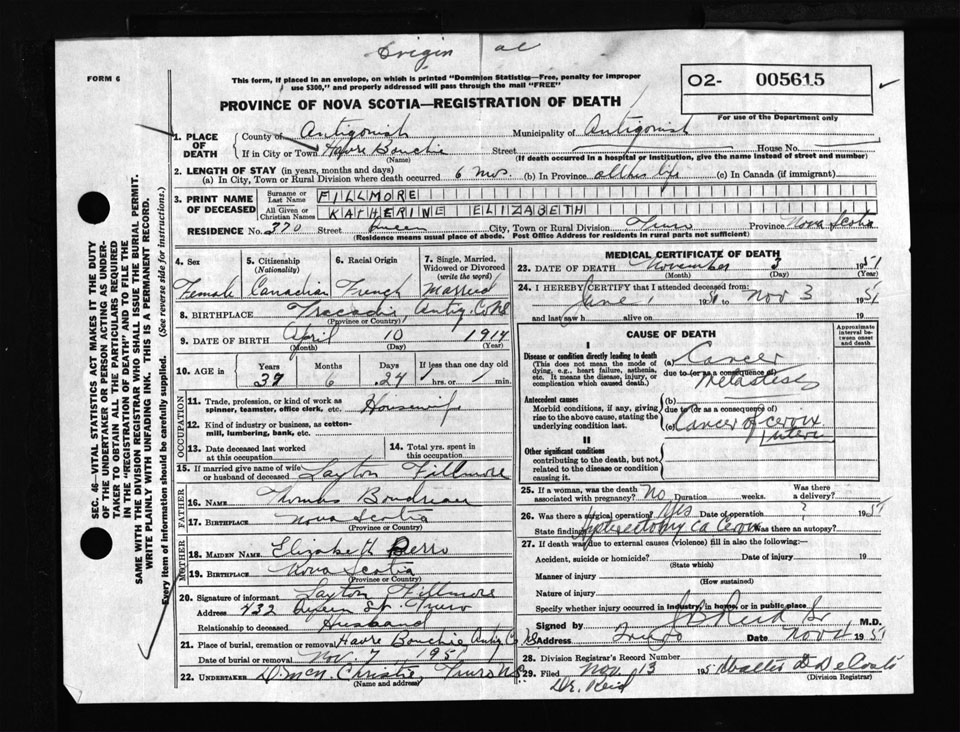 Origin al
FORM 6
This form, if placed in an envelope, on which is printed "Dominion Statistics—Free, penalty for improper
use $300," and properly addressed will pass through the mail "FREE"
O2- 005615
PROVINCE OF NOVA SCOTIA—REGISTRATION OF DEATH
For use of the Department only
1. PLACE OF DEATH
County of Antigonish Municipality of Antigonish
If in City or Town Havre Bouchie Street House No.
(Name) (If death occurred in a hospital or institution, give the name instead of street and number)
2. LENGTH OF STAY (in years, months and days)
(a) In City, Town or Rural Division where death occurred 6 mos. (b) In Province all her life (c) In Canada (if immigrant)
3. PRINT NAME OF DECEASED
Surname or Last Name FILLMORE
All Given or Christian Names KATHERINE ELIZABETH
RESIDENCE No. 370 Street Queen City, Town or Rural Division Truro Province Nova Scotia
(Residence means usual place of abode. Post Office Address for residents in rural parts not sufficient)
SEC. 46 VITAL STATISTICS ACT MAKES IT THE DUTY
OF THE UNDERTAKER OR PERSON ACTING AS UNDER-
TAKER TO OBTAIN ALL THE PARTICULARS REQUIRED
IN THE "REGISTRATION OF DEATH" AND TO FILE THE
SAME WITH THE DIVISION REGISTRAR WHO SHALL ISSUE THE BURIAL PERMIT.
WRITE PLAINLY WITH UNFADING INK. THIS IS A PERMANENT RECORD.
Every item of information should be carefully supplied. (See reverse side for instructions.)
4. Sex 5. Citizenship (Nationality) 6. Racial Origin 7. Single, Married, Widowed or Divorced (write the word)
Female Canadian French Married
8. BIRTHPLACE Tracadie Antig. Co NS
(Province or Country)
9. DATE OF BIRTH April 10 1914
(Month) (Day) (Year)
10. AGE in Years Months Days If less than one day old
37 6 24 hrs. or min.
OCCUPATION
11. Trade, profession, or kind of work as
spinner, teamster, office clerk, etc. Housewife
12. Kind of industry or business, as cotton-
mill, lumbering, bank, etc.
13. Date deceased last worked
at this occupation
14. Total yrs. spent in
this occupation
15. If married give name of wife
or husband of deceased Layton Fillmore
FATHER
16. NAME Thomas Boudreau
17. BIRTHPLACE Nova Scotia
(Province or Country)
MOTHER
18. MAIDEN NAME Elizabeth
19. BIRTHPLACE Nova Scotia
(Province or Country)
20. Signature of informant Layton Fillmore
Address 432 Queen St. Truro
Relationship to deceased Husband
21. Place of burial, cremation or removal Havre Bouchie Antig Co NS
Date of burial or removal Nov 7 1951
22. UNDERTAKER Christie Truro NS
(Name and address)
MEDICAL CERTIFICATE OF DEATH
23. DATE OF DEATH November 3 1951
(Month) (Day) (Year)
24. I HEREBY CERTIFY that I attended deceased from:
June 1 1951 to Nov 3 1951
and last saw h alive on 19
CAUSE OF DEATH
Approximate interval between onset and death
I
Disease or condition directly leading to death
(This does not mean the mode of
dying, e.g., heart failure, asthenia,
etc. It means the disease, injury, or
complication which caused death.)
(a) Cancer
due to (or as a consequence of)
Metastesis
Antecedent causes
Morbid conditions, if any, giving
rise to the above cause, stating the
underlying condition last.
(b)
due to (or as a consequence of)
(c) Cancer of cervix
uteri
II
Other significant conditions
contributing to the death, but not
related to the disease or condition
causing it.
25. If a woman, was the death
associated with pregnancy? No Duration weeks. Was there a delivery?
26. Was there a surgical operation? Yes Date of operation ? 1951
State findings Hysterectomy Ca Cervix Was there an autopsy?
27. If death was due to external causes (violence) fill in also the following:—
Accident, suicide or homicide? Date of injury 19
(State which)
Manner of injury
(How sustained)
Nature of injury
Specify whether injury occurred in industry, in home, or in public place
Signed by Reid Sr M.D.
Address Truro Date Nov 4 1951
28. Division Registrar's Record Number
29. Filed Nov. 13 1951 Walter D DeCoste
(Division Registrar)
Dr. Reid